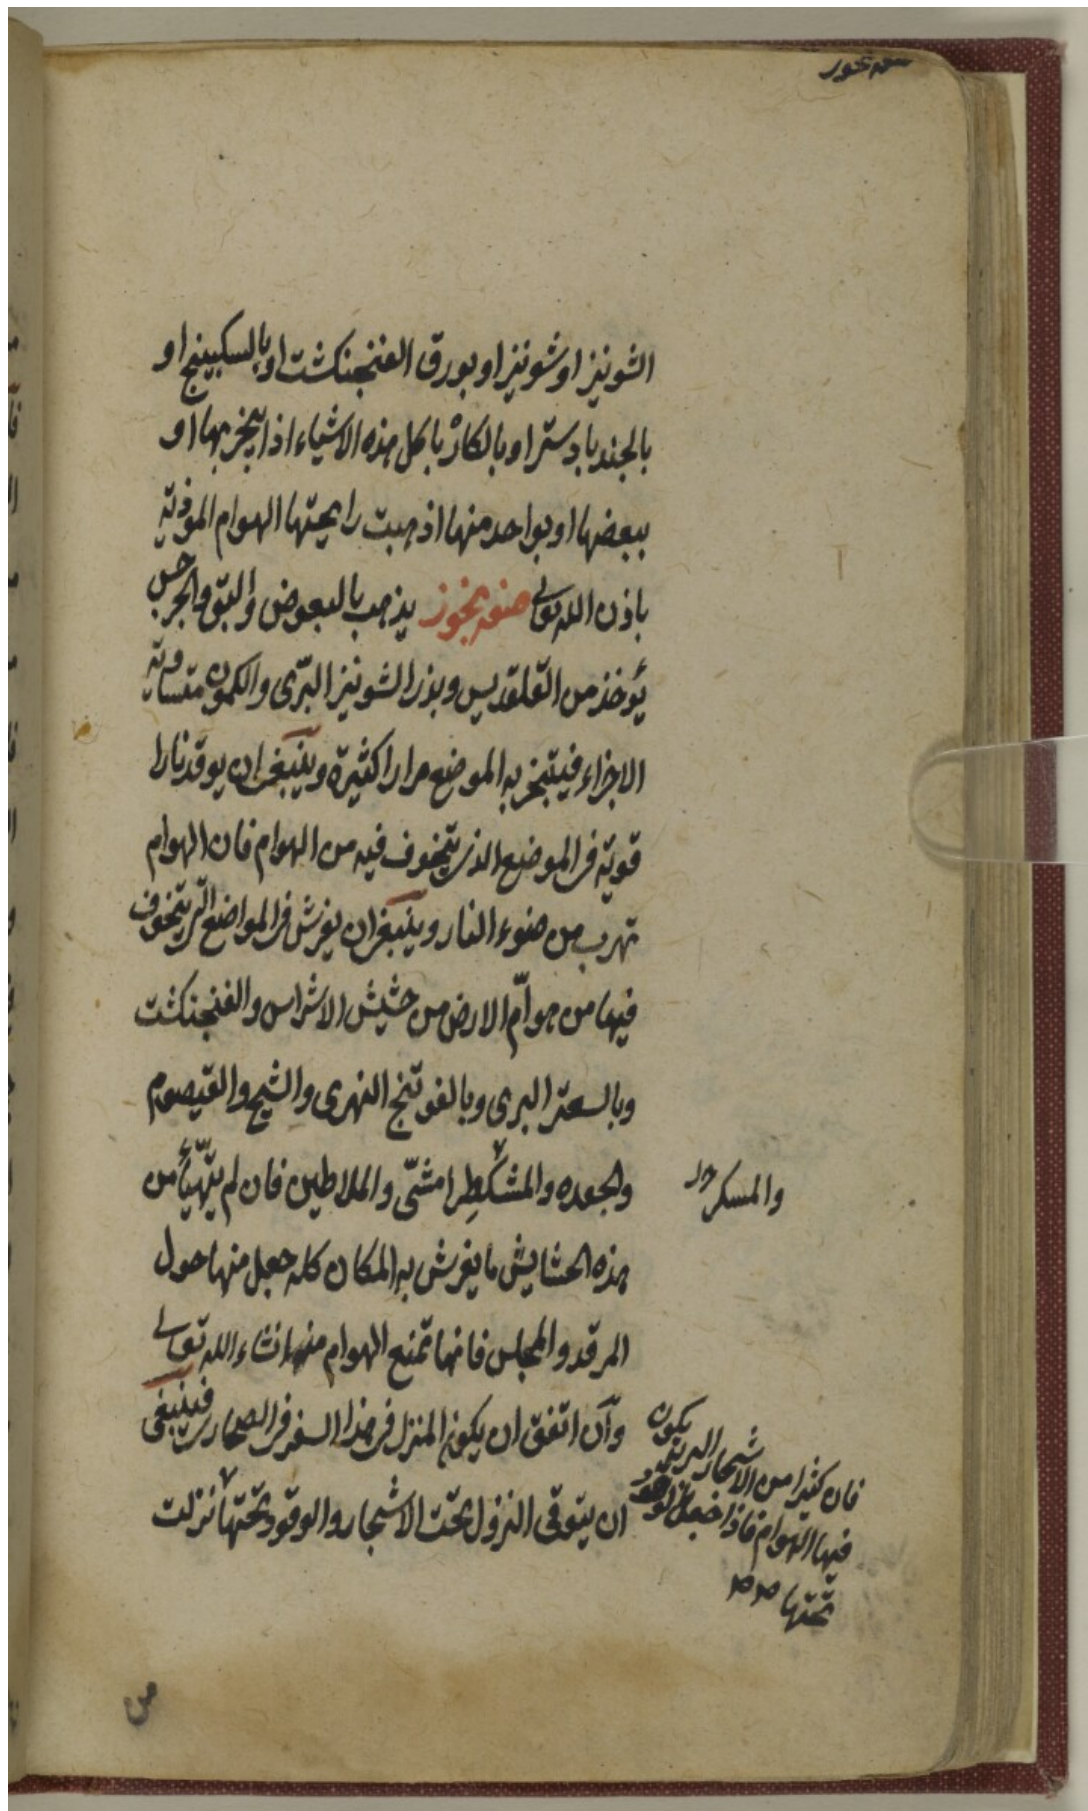 صفة بخور
الشونيز او شونيز او بورق الفنجنكشت او بالسكبينج او
بالجندبادستر او بالكاد باكل هذه الاشياء اذا يبخر بها او
ببعضها او بواحد منها اذهبت رايحتها الهوام الموذية
باذن الله تعالى صفة بخور يذهب بالبعوض والبق والجرجس
يؤخذ من القلقديس وبزر الشونيز البرّى والكمون متساوية
الاجزاء فيتبخر به الموضع مرارا كثيرة وينبغى ان يوقد نارا
قوية فى الموضع الذى يتخوف فيه من الهوام فان الهوام
تهرب من ضوء النار وينبغى ان يفرش فى المواضع التى يتخوف
فيها من هوامّ الارض من حشيش الاشراس والفنجنكشت
وبالسعتر البرى وبالفوتنج النهرى والشيح والقيصوم
والجعده والمشكطرامشّى والملاطين فان لم يتهيّأ من
والمسكر
هذه الحشايش ما يفرش به المكان كله جعل منها حول
المرقد والمجلس فانها تمنع الهوام منها انشاء الله تعالى
وان اتفق ان يكون المنزل فى هذا السفر فى الصحارى فينبغى
ان يتوقى النزول تحت الاشجار والوقود تحتها نزلت
فان كثيرا من الاشجار البرية يكون
فيها الهوام فاذا جعل الوقود
تحتها
من